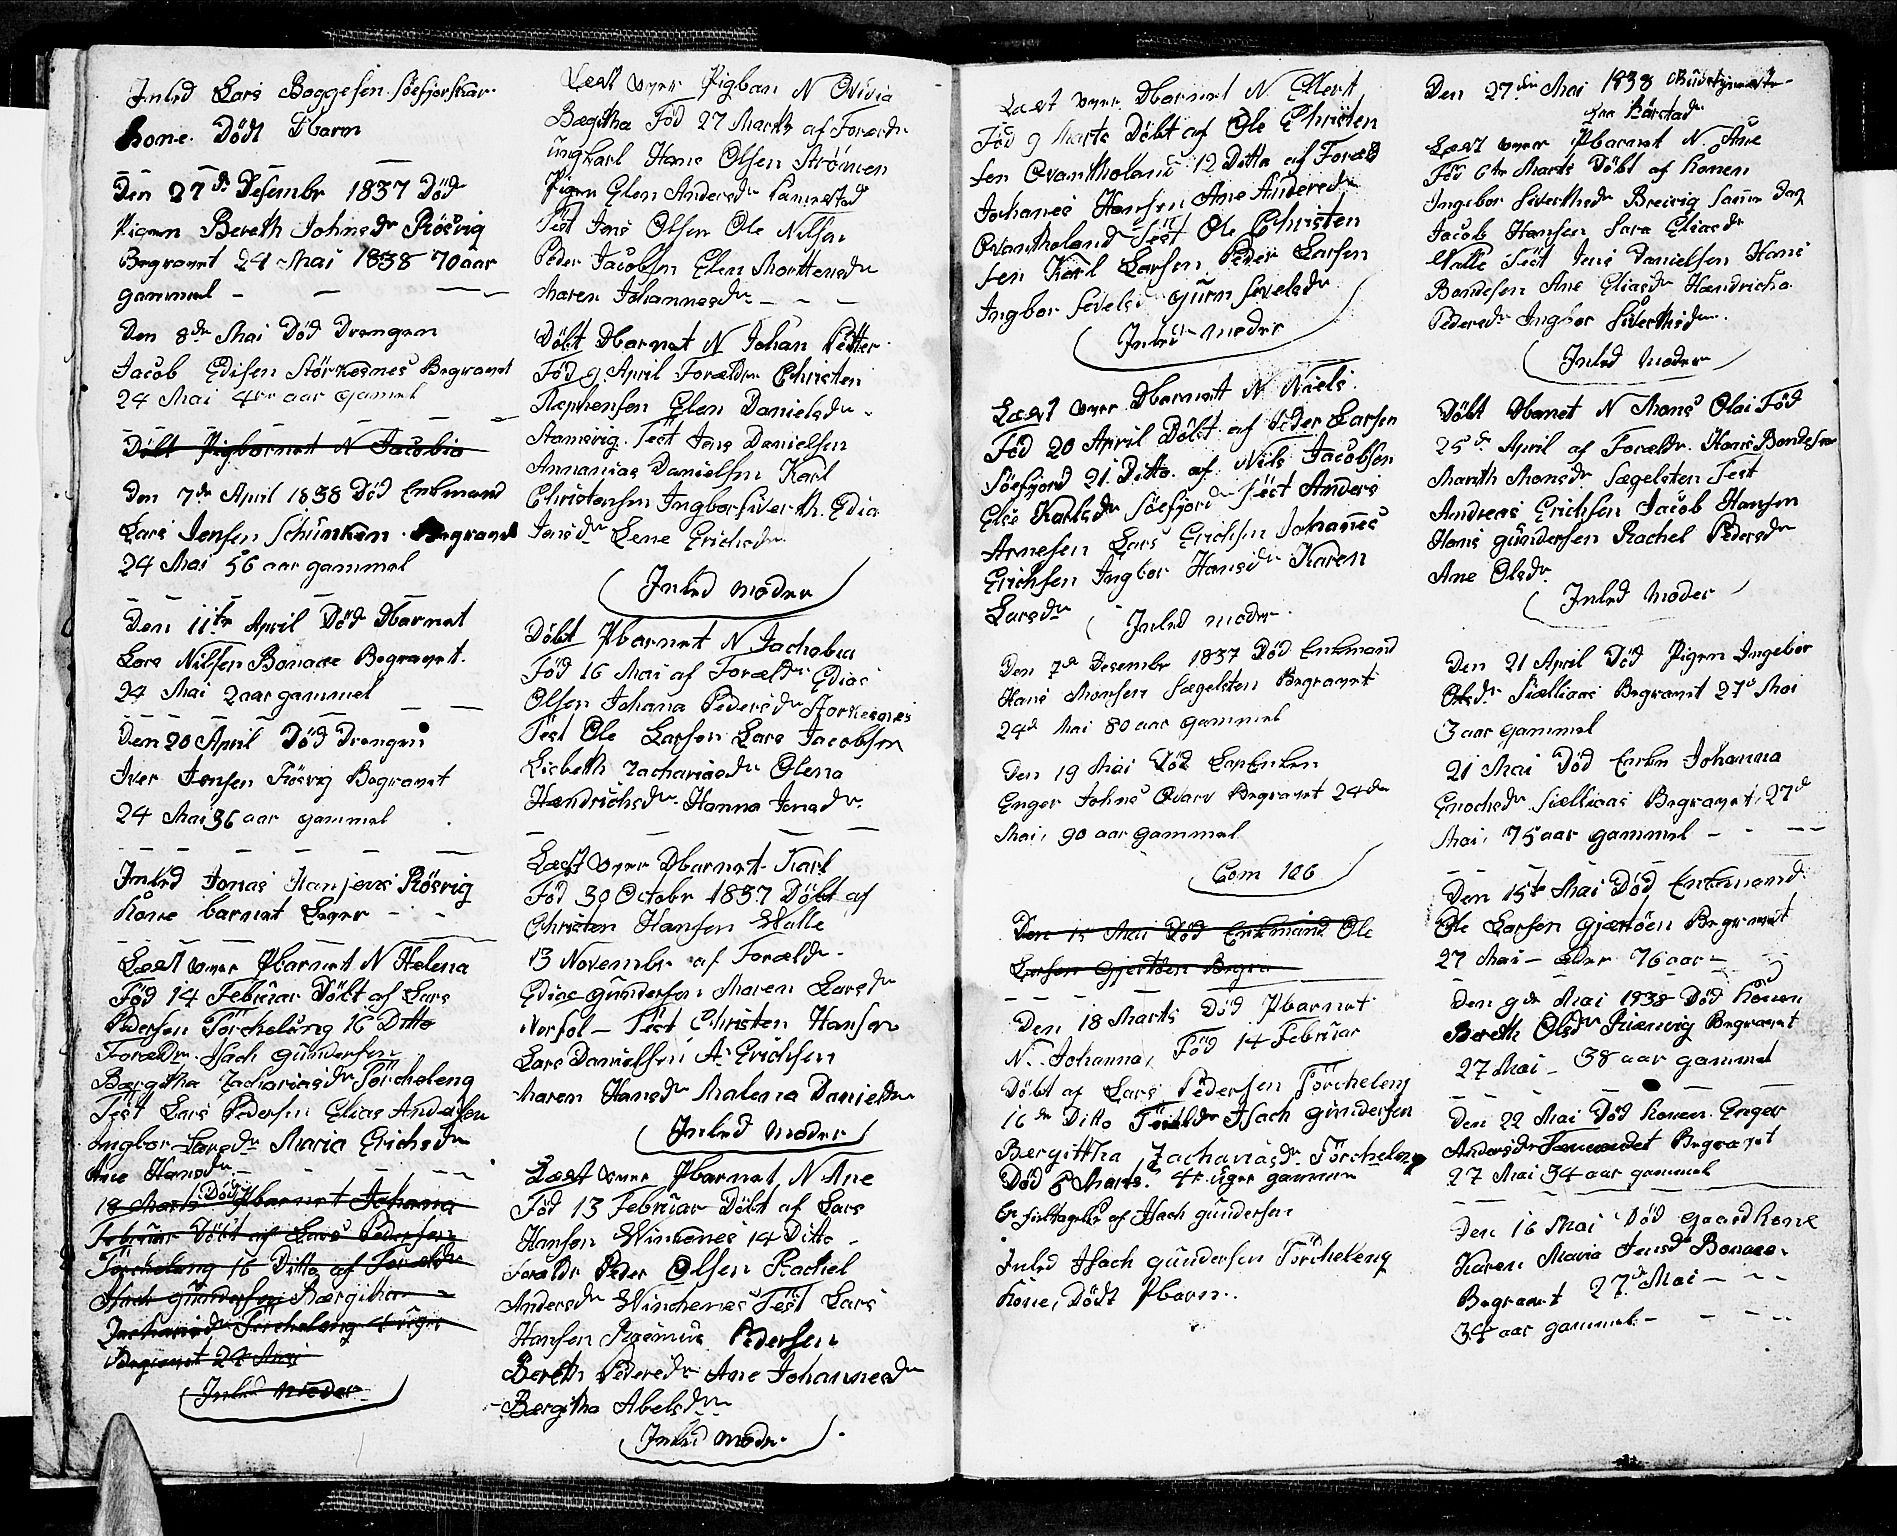 Inled Lars Boggesen Söefjorshar
kone. Dödt Dbarn
Den 27de Desembr 1837 Död
Pigen Bereth Johnsdr Rösvig
Begravet 24 Mai 1838 70 aar
gammel
Den 8de Mai Död Drengen
Jacob Edisen Störkesnes Begravet
24 Mai 4re aar gammel
Döbt Pigbarnet N Jacobia
Den 7de April 1838 Död Enkmand
Lars Jensen Schunken Begravet
24 Mai 56 aar gammel
Den 11te April Död Dbarnet
Lars Nilsen Bonaae Begravet
24 Mai 2 aar gammel
Den 20 April Död Drengen
Iver Jensen Rösvig Begravet
24 Mai 36 aar gammel
Inled Jonas Hansens Rösvig
Kone barnet Lever
Læst over Pbarnet N Helena
Föd 14 Februar Döbt af Lars
Pedersen Törcheleng 16 Ditto
Foreldr Isach Gundersen
Bergitha Zachariasdr Förcheleng
Test Lars Pedersen Elias Andersen
Ingbor Larsdr Maria Erichsdr
Ane Hansdr
18 Marts Död Pbarnet Johana
Februar Döbt af Lars Pedersen
Förcheleng 16 Ditto af Foreldr
Isach Gundersen Bergitha
Zachariasdr Förcheleng 4 uger
Begravet 24 Mai
Inled moder
Læst over Pigban N Ovidia
Bergitha Föd 27 Marts af Foreldr
ungkarl Hans Olsen Strömen
Pigen Elen Andersdr
Test Jens Olsen Ole Nilsen
Peder Jacobsen Elen Morttensdr
Maren Johannesdr
Döbt Dbarnet N Johan Petter
Föd 9 April Foreldre Christen
Stephensen Elen Danielsdr
Stamsvig Test Jens Danielsen
Annanias Danielsen Karl
Christensen Ingbor Siverth. Edia
Jensdr Lene Erichsdr
Inled moder
Döbt Pbarnet N Jachobia
Föd 16 Mai af Foreldr Edias
Olsen Johana Pedersdr Storkesnes
Test Ole Larsen Lars Jacobsen
Lisbeth Zachariasdr Olena
Hændrichsdr Hanna Jensdr
Læst over Dbarnet Karl
Föd 30 October 1837 Döbt af
Christen Hansen Walle
13 Novembr af Foreldr
Edias Gundersen Maren Larsdr
Norfol Test Christen Hansen
Lars Danielsen A. Erichsen
Maren Hansdr Malena Danielsdr
Inled moder
Læst over Pbarnet N Ane
Föd 13 Februar Döbt af Lars
Hansen Winkenes 14 Ditto
Foreldr Peder Olsen Rachel
Andersdr Winchenes Test Lars
Hansen Rasmus Pedersen
Bereth Pedersdr Ane Johannesdr
Bergitha Abelsdr
Inled moder
Læst over Dbarnet N Elert
Föd 9 Marts Döbt af Ole Christen
sen Qvantholand 12 Ditto af Foreld
Johanes Hansen Ane Andersdr
Qvantholand Test Ole Christen
sen Karl Larsen Peder Larsen
Ingbor Sevelsdr Gurn Sevelsdr
Inled moder
Læst over Dbarnet N Niels
Föd 20 April Döbt af Peder Larsen
Söefjord 21 Ditto af Nils Jacobsen
Else Karlsdr Söefjord Test Anders
Arnesen Lars Erichsen Johanes
Erichsen Ingbor Hansdr Karen
Larsdr
Inled moder
Den 7de Desembr 1837 Död Enkmand
Hans Monsen Sægelsten Begravet
24de Mai 80 aar gammel
Den 19 Mai Död
Enger Johns Qvarv Begravet 24de
Mai, 90 aar gammel
Com 106
Den 15 Mai Död Enkmand Ole
Larsen Gjertöen Begra
Den 18 Marts Död Pbarnet
N. Johanna, Föd 14 Februar
Döbt af Lars Pedersen Förcheleng
16de Ditto Foreldr Isach Gundersen
Bergittha Zachariasdr Förcheleng
Död 8 Marts. 4r uger gammel
af Isach Gundersen
Inled Isach Gundersen Förcheleng
Kone, Dödt Pbarn.
Den 27de Mai 1838
Læst over Pbarnet N. Ane
Föd 6te Marts Döbt af konen
Ingebor Siverthsdr Breivig samme Dag
Jacob Hansen Sara Eliasdr
Valle Test Jens Danielsen Hans
Bondesen Ane Eliasdr Hændricha
Pedersdr Ingbor Siverthsdr
Inled Moder
Döbt Dbanet N Mons Olai Föd
25de April af Foreldr. Hans Bondesen
Marith Monsdr Sægelsten Test
Andreas Erichsen Jacob Hansen
Hans Gundersen Rachel Pedersdr
Ane Olsdr
Inled Moder
Den 21 April Död Pigen Ingebor
Olsdr Siællaas Begravet 27de Mai
3 aar gammel
21 Mai Död Enken Johanna
Enochsdr Siællaas Begravet 27de
Mai, 75 aar gammel
Den 15te Mai Död Enkmand
Ole Larsen Gjertöen Begravet
27 Mai 76 aar
Den 9de Mai 1838 Död konen
Bereth Olsdr Begravet
27 Mai 38 aar gammel
Den 22 Mai Död konen Enger
Andersdr Begravet
27 Mai 34 aar gammel
Den 16 Mai Död Gaardkone
Karen Maria Jensdr Bonaae
Begravet 27de Mai
34 aar gammel